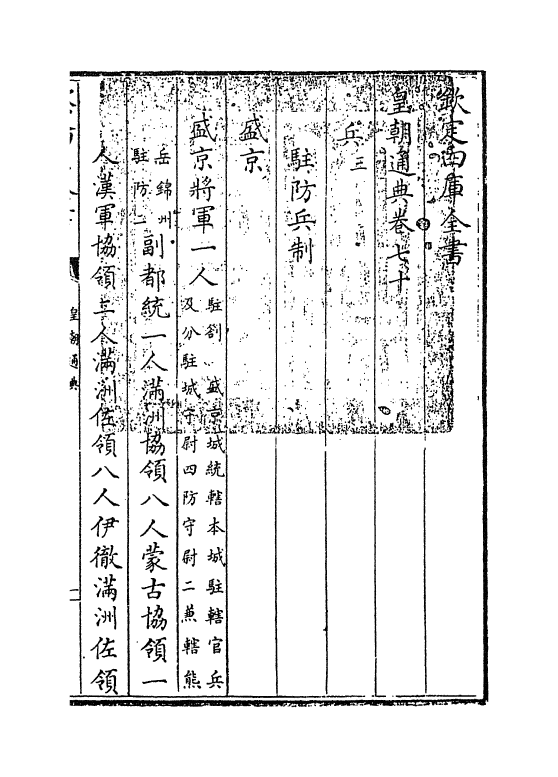 欽定四庫全書
皇朝通典卷七十
兵三
駐防兵制
盛京
盛京將軍一人駐劄 盛京城統轄本城駐轄官兵
及分駐城守尉四防守尉二兼轄熊
岳錦州
駐防二副都統一人滿洲協領八人蒙古協領一
人漢軍協領二人滿洲佐領八人伊徹滿洲佐領
皇朝通典